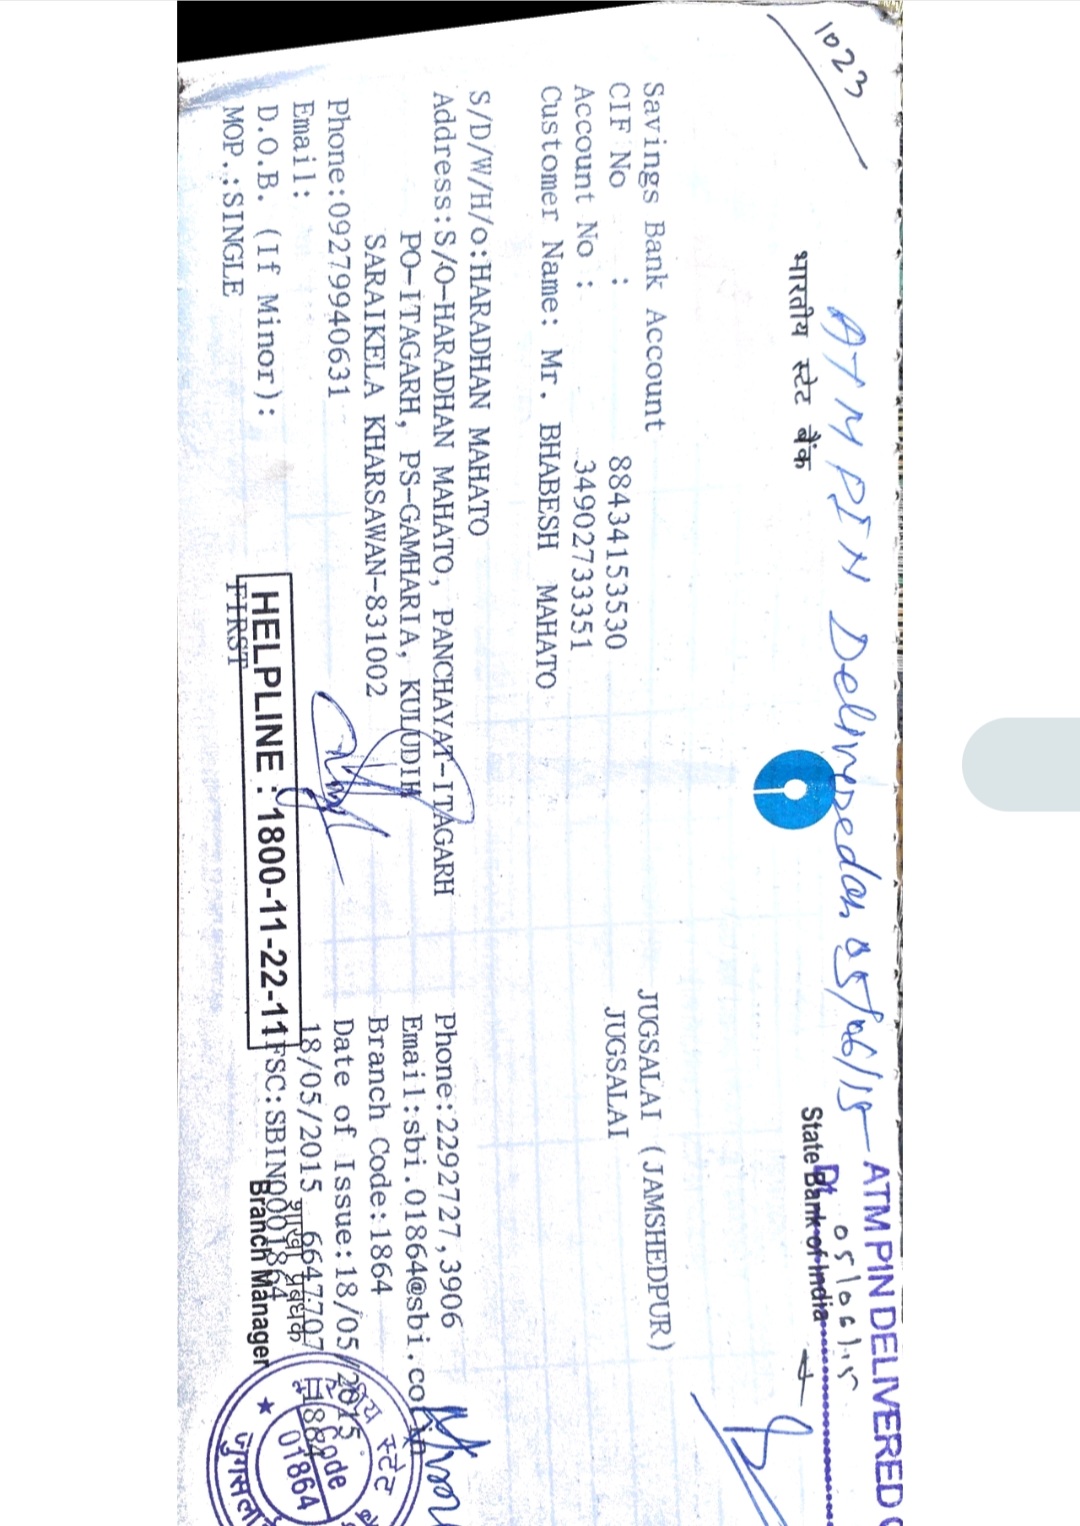 1023
ATM PIN Delivered on 05/06/15
ATM PIN DELIVERED
Dt. 05/06/15
भारतीय स्टेट बैंक
State Bank of India
Savings Bank Account
JUGSALAI (JAMSHEDPUR)
CIF No : 88434153530
JUGSALAI
Account No : 34902733351
Customer Name: Mr. BHABESH MAHATO
S/D/W/H/o:HARADHAN MAHATO
Address:S/O-HARADHAN MAHATO, PANCHAYAT-ITAGARH
Phone:2292727,3906
PO-ITAGARH, PS-GAMHARIA, KULUDIH
Email:sbi.01864@sbi.co.in
SARAIKELA KHARSAWAN-831002
Branch Code:1864
Phone:09279940631
Date of Issue:18/05/2015
Email:
18/05/2015 6647707
D.O.B. (If Minor):
HELPLINE : 1800-11-22-11
FSC:SBIN0001864
MOP.:SINGLE
FIRST
शाखा प्रबंधक
Branch Manager
भारतीय स्टेट
Code
01864